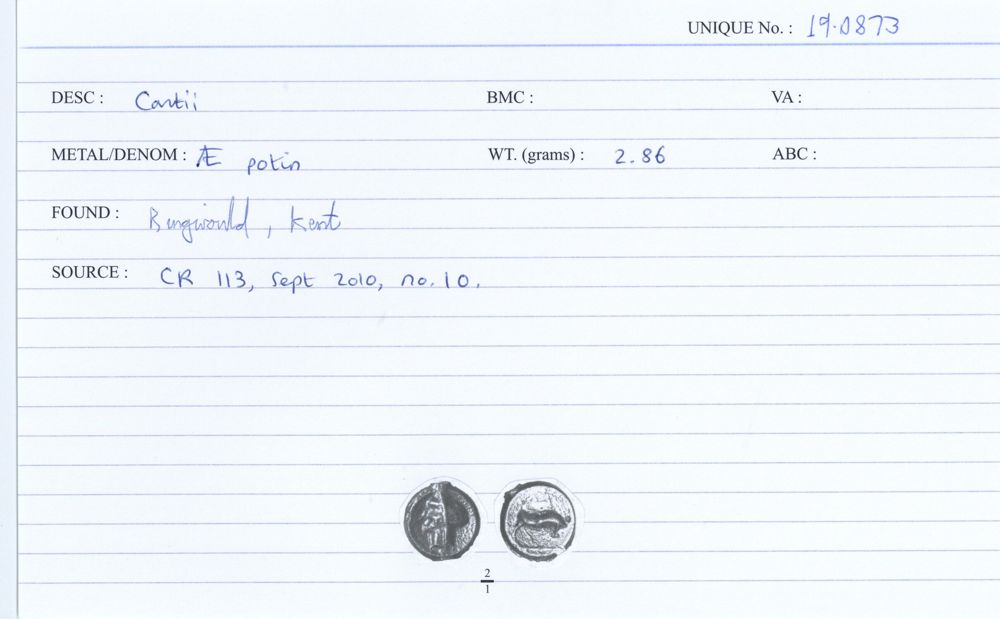 UNIQUE No. : 19.0873
DESC : Cantii BMC : VA :
METAL/DENOM : Æ potin WT. (grams) : 2.86 ABC :
FOUND : Ringwould, Kent
SOURCE : CR 113, Sept 2010, no. 10.
2
1